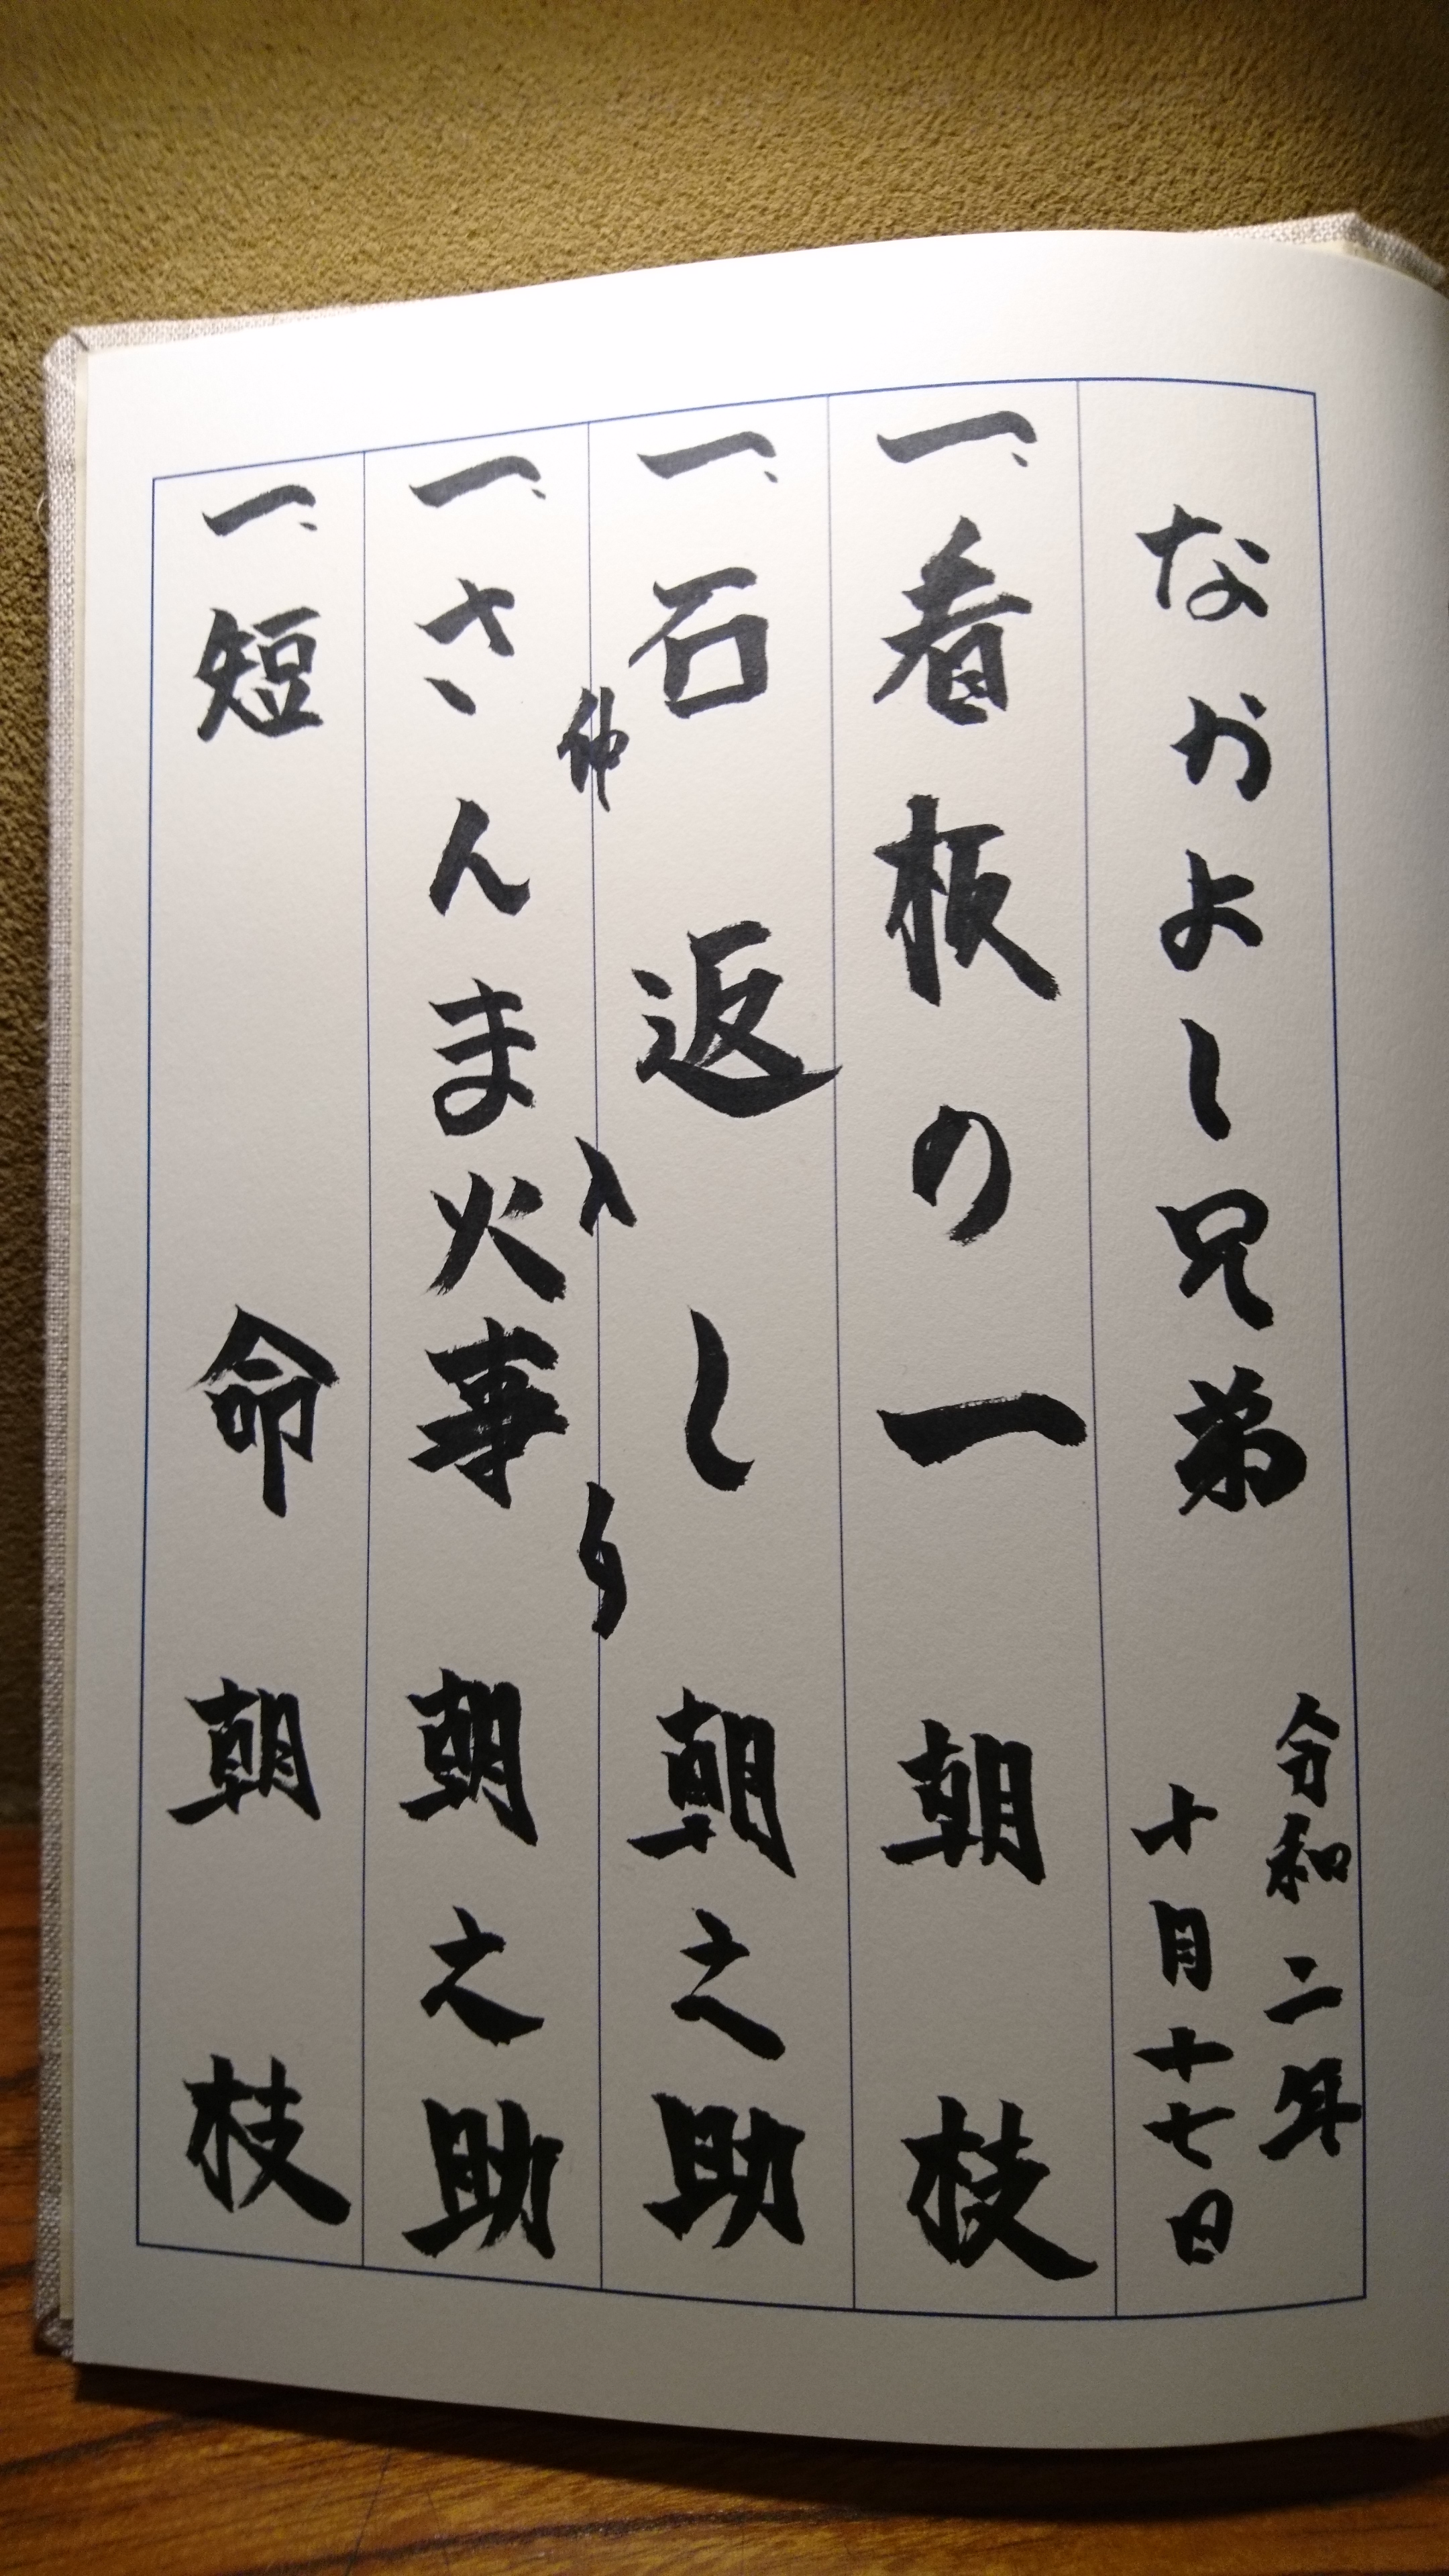 なかよし兄弟
令和二年
十月十七日
一、看板の一 朝枝
一、石返し 朝之助
仲入り
一、さんま火事 朝之助
一、短命 朝枝